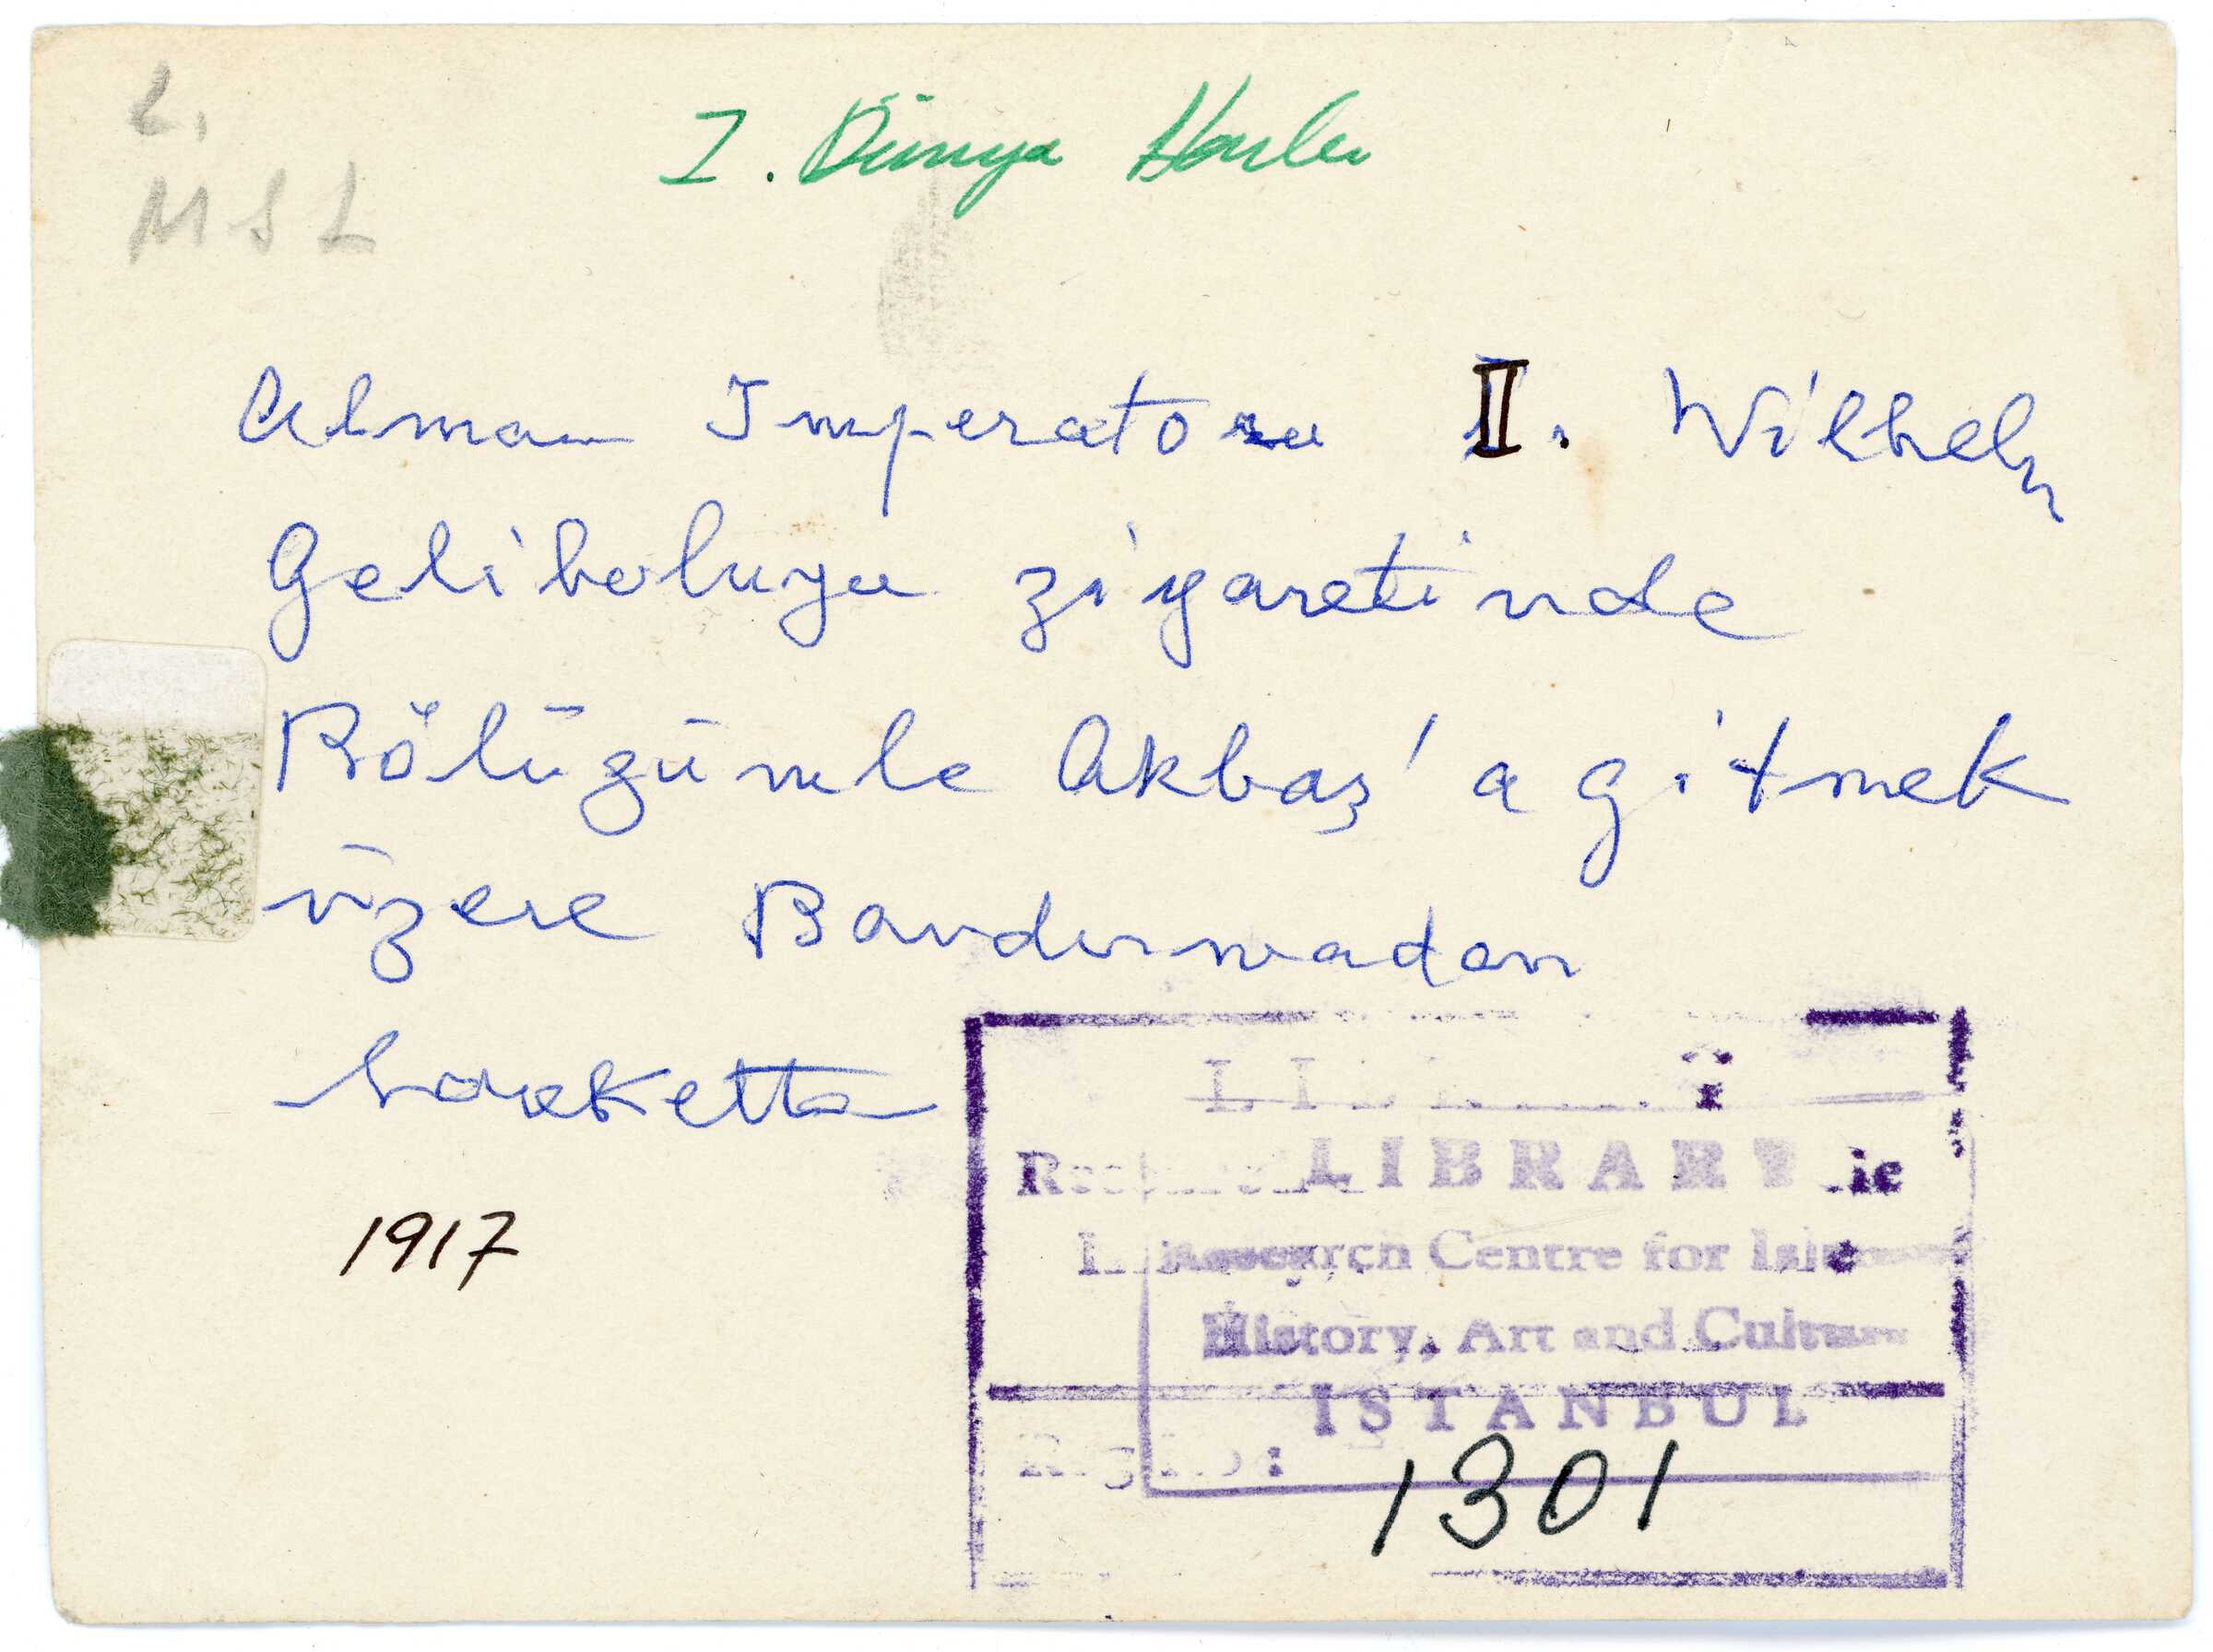 L.
MSL
I. Dünya Harbi
Alman Imperatoru II. Wilhelm
Geliboluya ziyaretinde
Bölüğümle Akbaş'a gitmek
üzere Bandırmadan
harekette
1917
LIBRARY
Research Centre for Islamic
History, Art and Culture
ISTANBUL
1301